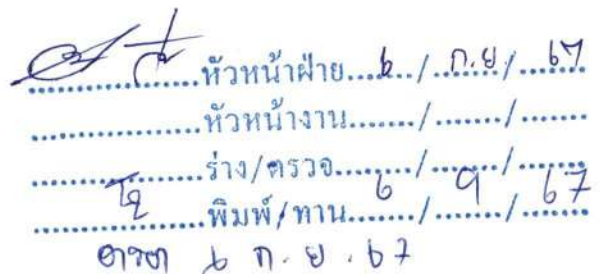 หัวหน้าฝ่าย 6 / ก.ย. / 67
หัวหน้างาน / /
ร่าง/ตรวจ / /
พิมพ์/ทาน 6 / 9 / 67
6 ก.ย. 67